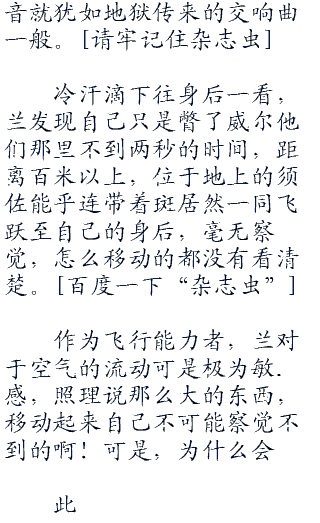 音就犹如地狱传来的交响曲
一般。[请牢记住杂志虫]
冷汗滴下往身后一看，
兰发现自己只是瞥了威尔他
们那里不到两秒的时间，距
离百米以上，位于地上的须
佐能乎连带着斑居然一同飞
跃至自己的身后，毫无察
觉，怎么移动的都没有看清
楚。[百度一下“杂志虫”]
作为飞行能力者，兰对
于空气的流动可是极为敏.
感，照理说那么大的东西，
移动起来自己不可能察觉不
到的啊！可是，为什么会
此